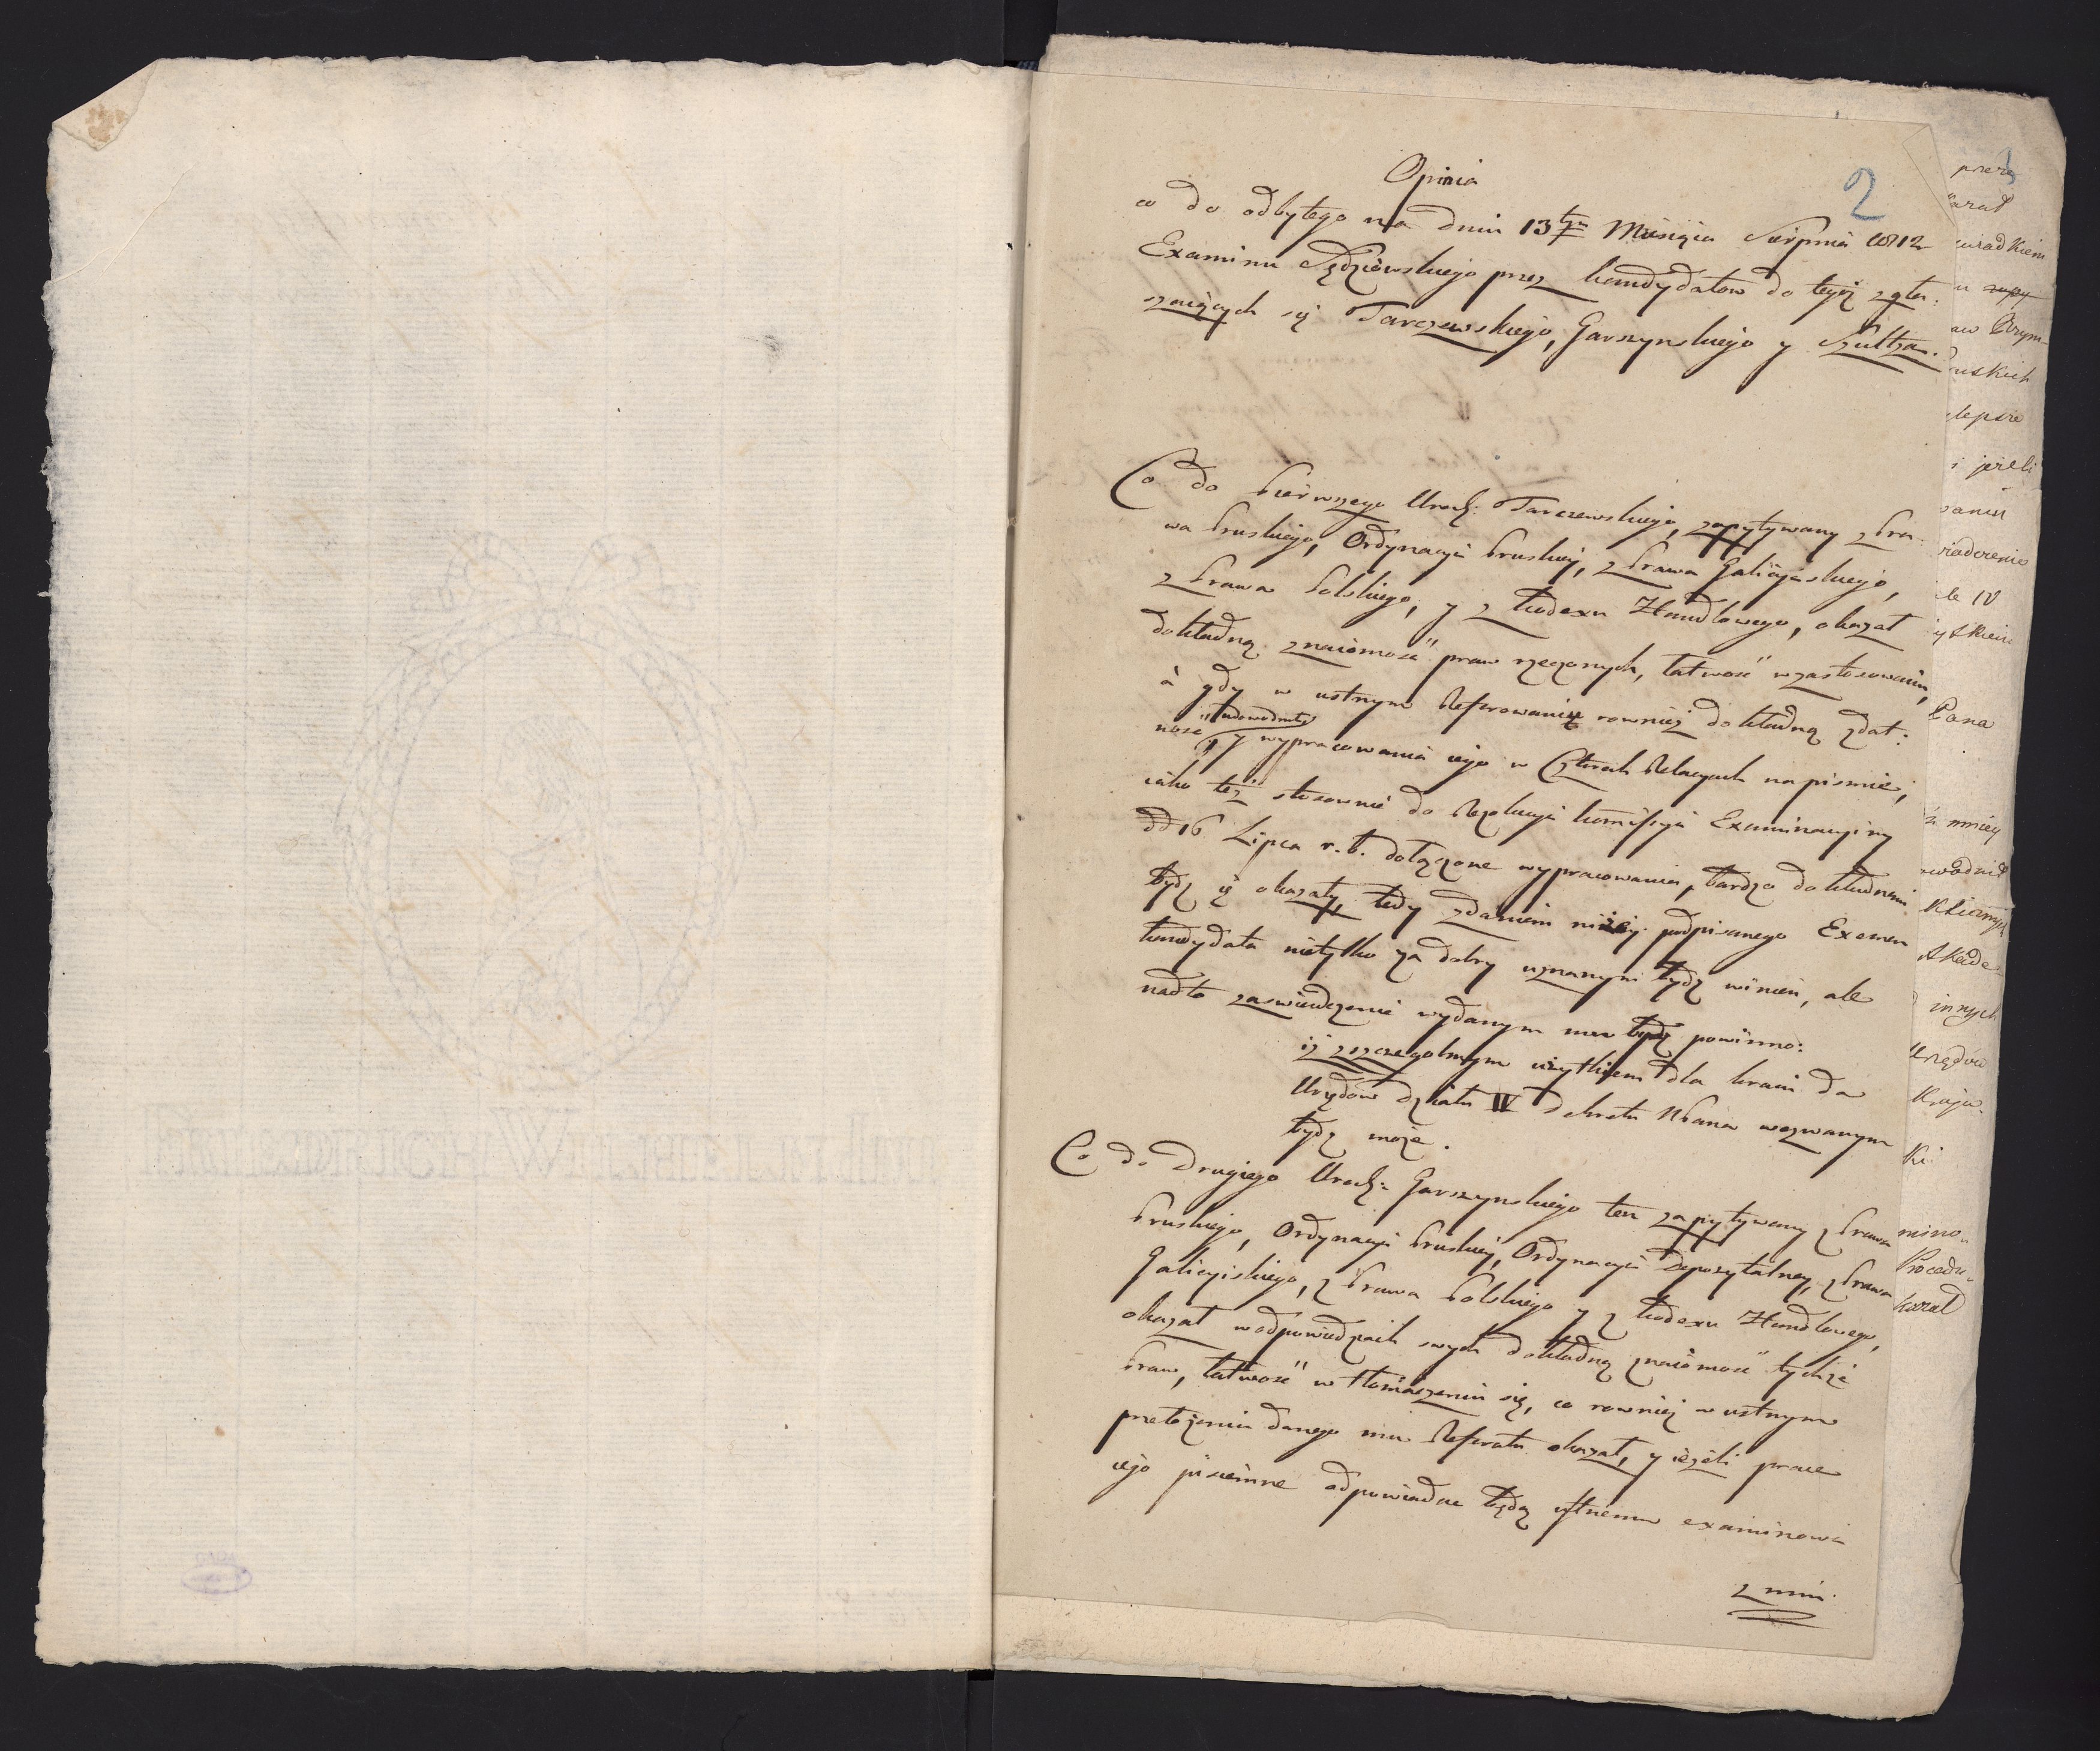 2
Opinia
co do odbytego na dniu 13tym Miesiąca Sierpnia 1812
Examinu Sędziowskiego przez kandydatow do tegoż zgła:
szaiących się Tarczewskiego, Garszynskiego y Szultza.
Co do Pierwszego Urodz: Tarczewskiego, zapytywany z Pra-
wa Pruskiego, Ordynacyi Pruskiey, z Prawa Galicyiskiego,
z Prawa Polskiego, y z Kodexu Handlowego, okazał
dokładną znaiomość praw rzeczonych, łatwość w zastosowaniu,
à gdy w ustnym Referowaniu rownież dokładną zdat:
ność udowodnił y wypracowania iego w Czterech Relacyach na pismie,
iako też stosownie do Rezolucyi Kommissyi Examinacyiney
dd 16 Lipca r. b. dołączone wypracowania, bardzo dokładnemi
bydź się okazały, tedy zdaniem niżey podpisanego Examen
kandydata nietylko za dobry uznanym bydź winien, ale
nadto zaswiadczenie wydanym mu bydź powinno:
iż z szczegolnym użytkiem dla kraiu do
Urzędow działu IV Dekretu N Pana wezwanym
bydź może.
Co do Drugiego Urodz: Garszynskiego ten zapytywany z Prawa
Pruskiego, Ordynacyi Pruskiey, Ordynacyi Depozytalney, z Prawa
Galicyiskiego, z Prawa Polskiego y z Kodexu Handlowego,
okazał w odpowiedziach swych dokładną znaiomość tychże
Praw, łatwość w tłomaczeniu się, co rowniey w ustnym
przełożeniu danego mu Referatu okazał, y ieżeli prace
iego piśmienne odpowiadać będą ustnemu examinowi
z nim
przez
Pana
innych
Urzędów
Kraju